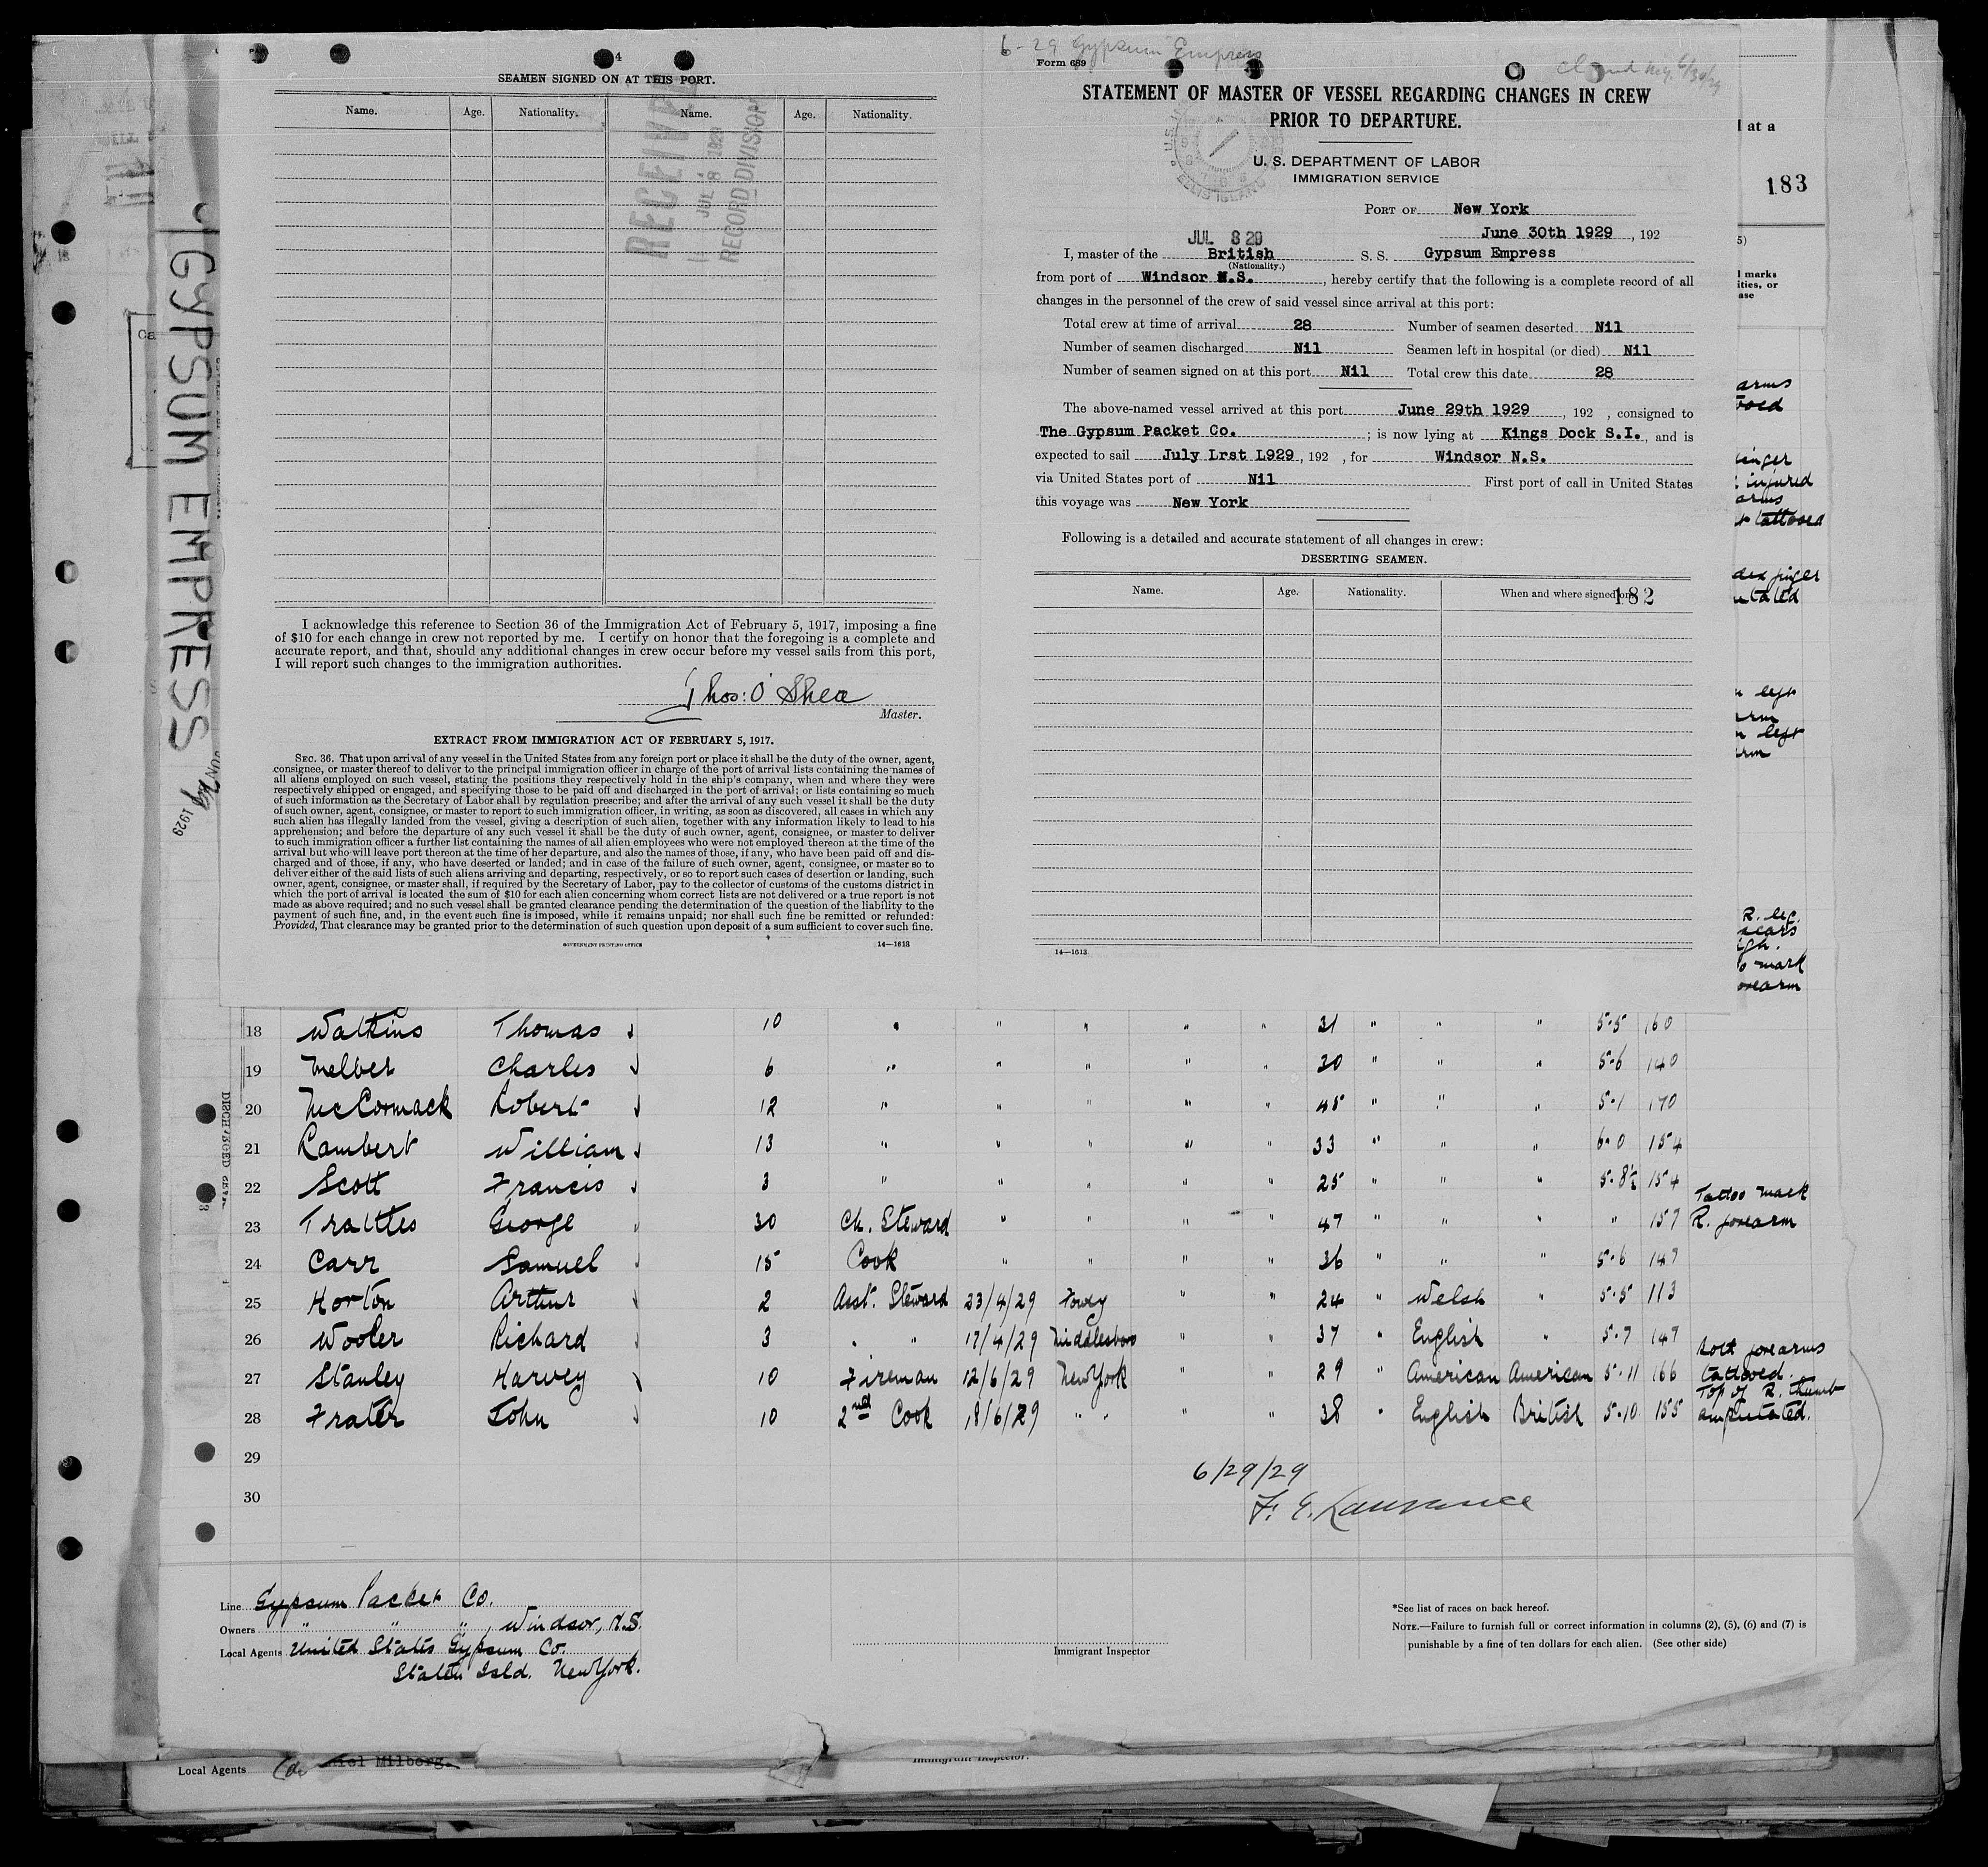 4
SEAMEN SIGNED ON AT THIS PORT.
Name. Age. Nationality. Name. Age. Nationality.
RECEIVED
JUL 8 1929
RECORD DIVISION
I acknowledge this reference to Section 36 of the Immigration Act of February 5, 1917, imposing a fine
of $10 for each change in crew not reported by me. I certify on honor that the foregoing is a complete and
accurate report, and that, should any additional changes in crew occur before my vessel sails from this port,
I will report such changes to the immigration authorities.
Thos: O'Shea
Master.
EXTRACT FROM IMMIGRATION ACT OF FEBRUARY 5, 1917.
SEC. 36. That upon arrival of any vessel in the United States from any foreign port or place it shall be the duty of the owner, agent,
consignee, or master thereof to deliver to the principal immigration officer in charge of the port of arrival lists containing the names of
all aliens employed on such vessel, stating the positions they respectively hold in the ship's company, when and where they were
respectively shipped or engaged, and specifying those to be paid off and discharged in the port of arrival; or lists containing so much
of such information as the Secretary of Labor shall by regulation prescribe; and after the arrival of any such vessel it shall be the duty
of such owner, agent, consignee, or master to report to such immigration officer, in writing, as soon as discovered, all cases in which any
such alien has illegally landed from the vessel, giving a description of such alien, together with any information likely to lead to his
apprehension; and before the departure of any such vessel it shall be the duty of such owner, agent, consignee, or master to deliver
to such immigration officer a further list containing the names of all alien employees who were not employed thereon at the time of the
arrival but who will leave port thereon at the time of her departure, and also the names of those, if any, who have been paid off and dis-
charged and of those, if any, who have deserted or landed; and in case of the failure of such owner, agent, consignee, or master so to
deliver either of the said lists of such aliens arriving and departing, respectively, or so to report such cases of desertion or landing, such
owner, agent, consignee, or master shall, if required by the Secretary of Labor, pay to the collector of customs of the customs district in
which the port of arrival is located the sum of $10 for each alien concerning whom correct lists are not delivered or a true report is not
made as above required; and no such vessel shall be granted clearance pending the determination of the question of the liability to the
payment of such fine, and, in the event such fine is imposed, while it remains unpaid; nor shall such fine be remitted or refunded:
Provided, That clearance may be granted prior to the determination of such question upon deposit of a sum sufficient to cover such fine.
GOVERNMENT PRINTING OFFICE 14—1613
6-29 Gypsum Empress
Form 689
STATEMENT OF MASTER OF VESSEL REGARDING CHANGES IN CREW
PRIOR TO DEPARTURE.
U. S. DEPARTMENT OF LABOR
IMMIGRATION SERVICE
PORT OF New York
June 30th 1929, 192
JUL 8 29
I, master of the British S. S. Gypsum Empress
(Nationality.)
from port of Windsor N.S., hereby certify that the following is a complete record of all
changes in the personnel of the crew of said vessel since arrival at this port:
Total crew at time of arrival 28 Number of seamen deserted Nil
Number of seamen discharged Nil Seamen left in hospital (or died) Nil
Number of seamen signed on at this port Nil Total crew this date 28
The above-named vessel arrived at this port June 29th 1929, 192 , consigned to
The Gypsum Packet Co. ; is now lying at Kings Dock S.I., and is
expected to sail July Lrst L929, 192 , for Windsor N.S.
via United States port of Nil First port of call in United States
this voyage was New York
Following is a detailed and accurate statement of all changes in crew:
DESERTING SEAMEN.
Name. Age. Nationality. When and where signed on.
182
14—1613
GYPSUM EMPRESS
1929
l at a
183
5)
l marks
ities, or
ase
arms
inger
injured
arms
tattooed
left
arm
left
arm
R. leg.
scars
mark
forearm
18 Watkins Thomas 10 " " " " " 31 " " " 5-5 160
19 Melber Charles 6 " " " " " 30 " " " 5-6 140
20 McCormack Robert 12 " " " " " 45 " " " 5-1 170
21 Lambert William 13 " " " " " 33 " " " 6-0 154
22 Scott Francis 3 " " " " " 25 " " " 5-8½ 154
23 Trattles George 30 Ch. Steward " " " " 47 " " " " 157 Tattoo mark R. forearm
24 Carr Samuel 15 Cook " " " " 36 " " " 5-6 147
25 Horton Arthur 2 Asst. Steward 23/4/29 Fowey " " 24 " Welsh " 5-5 113
26 Wooler Richard 3 " " 17/4/29 Middlesboro " " 37 " English " 5-7 147
27 Stanley Harvey 10 Fireman 12/6/29 New York " " 29 " American American 5-11 166 Both forearms tattooed.
28 Frater John 10 2nd Cook 18/6/29 " " " " 38 " English British 5-10 155 Top of R. thumb amputated.
29
30
6/29/29
F. E. Lawrence
Line Gypsum Packet Co.
Owners " " ", Windsor, N.S.
Local Agents United States Gypsum Co.
Staten Isld. New York.
Immigrant Inspector
*See list of races on back hereof.
NOTE.—Failure to furnish full or correct information in columns (2), (5), (6) and (7) is
punishable by a fine of ten dollars for each alien. (See other side)
Local Agents Milberg.
Immigrant Inspector.